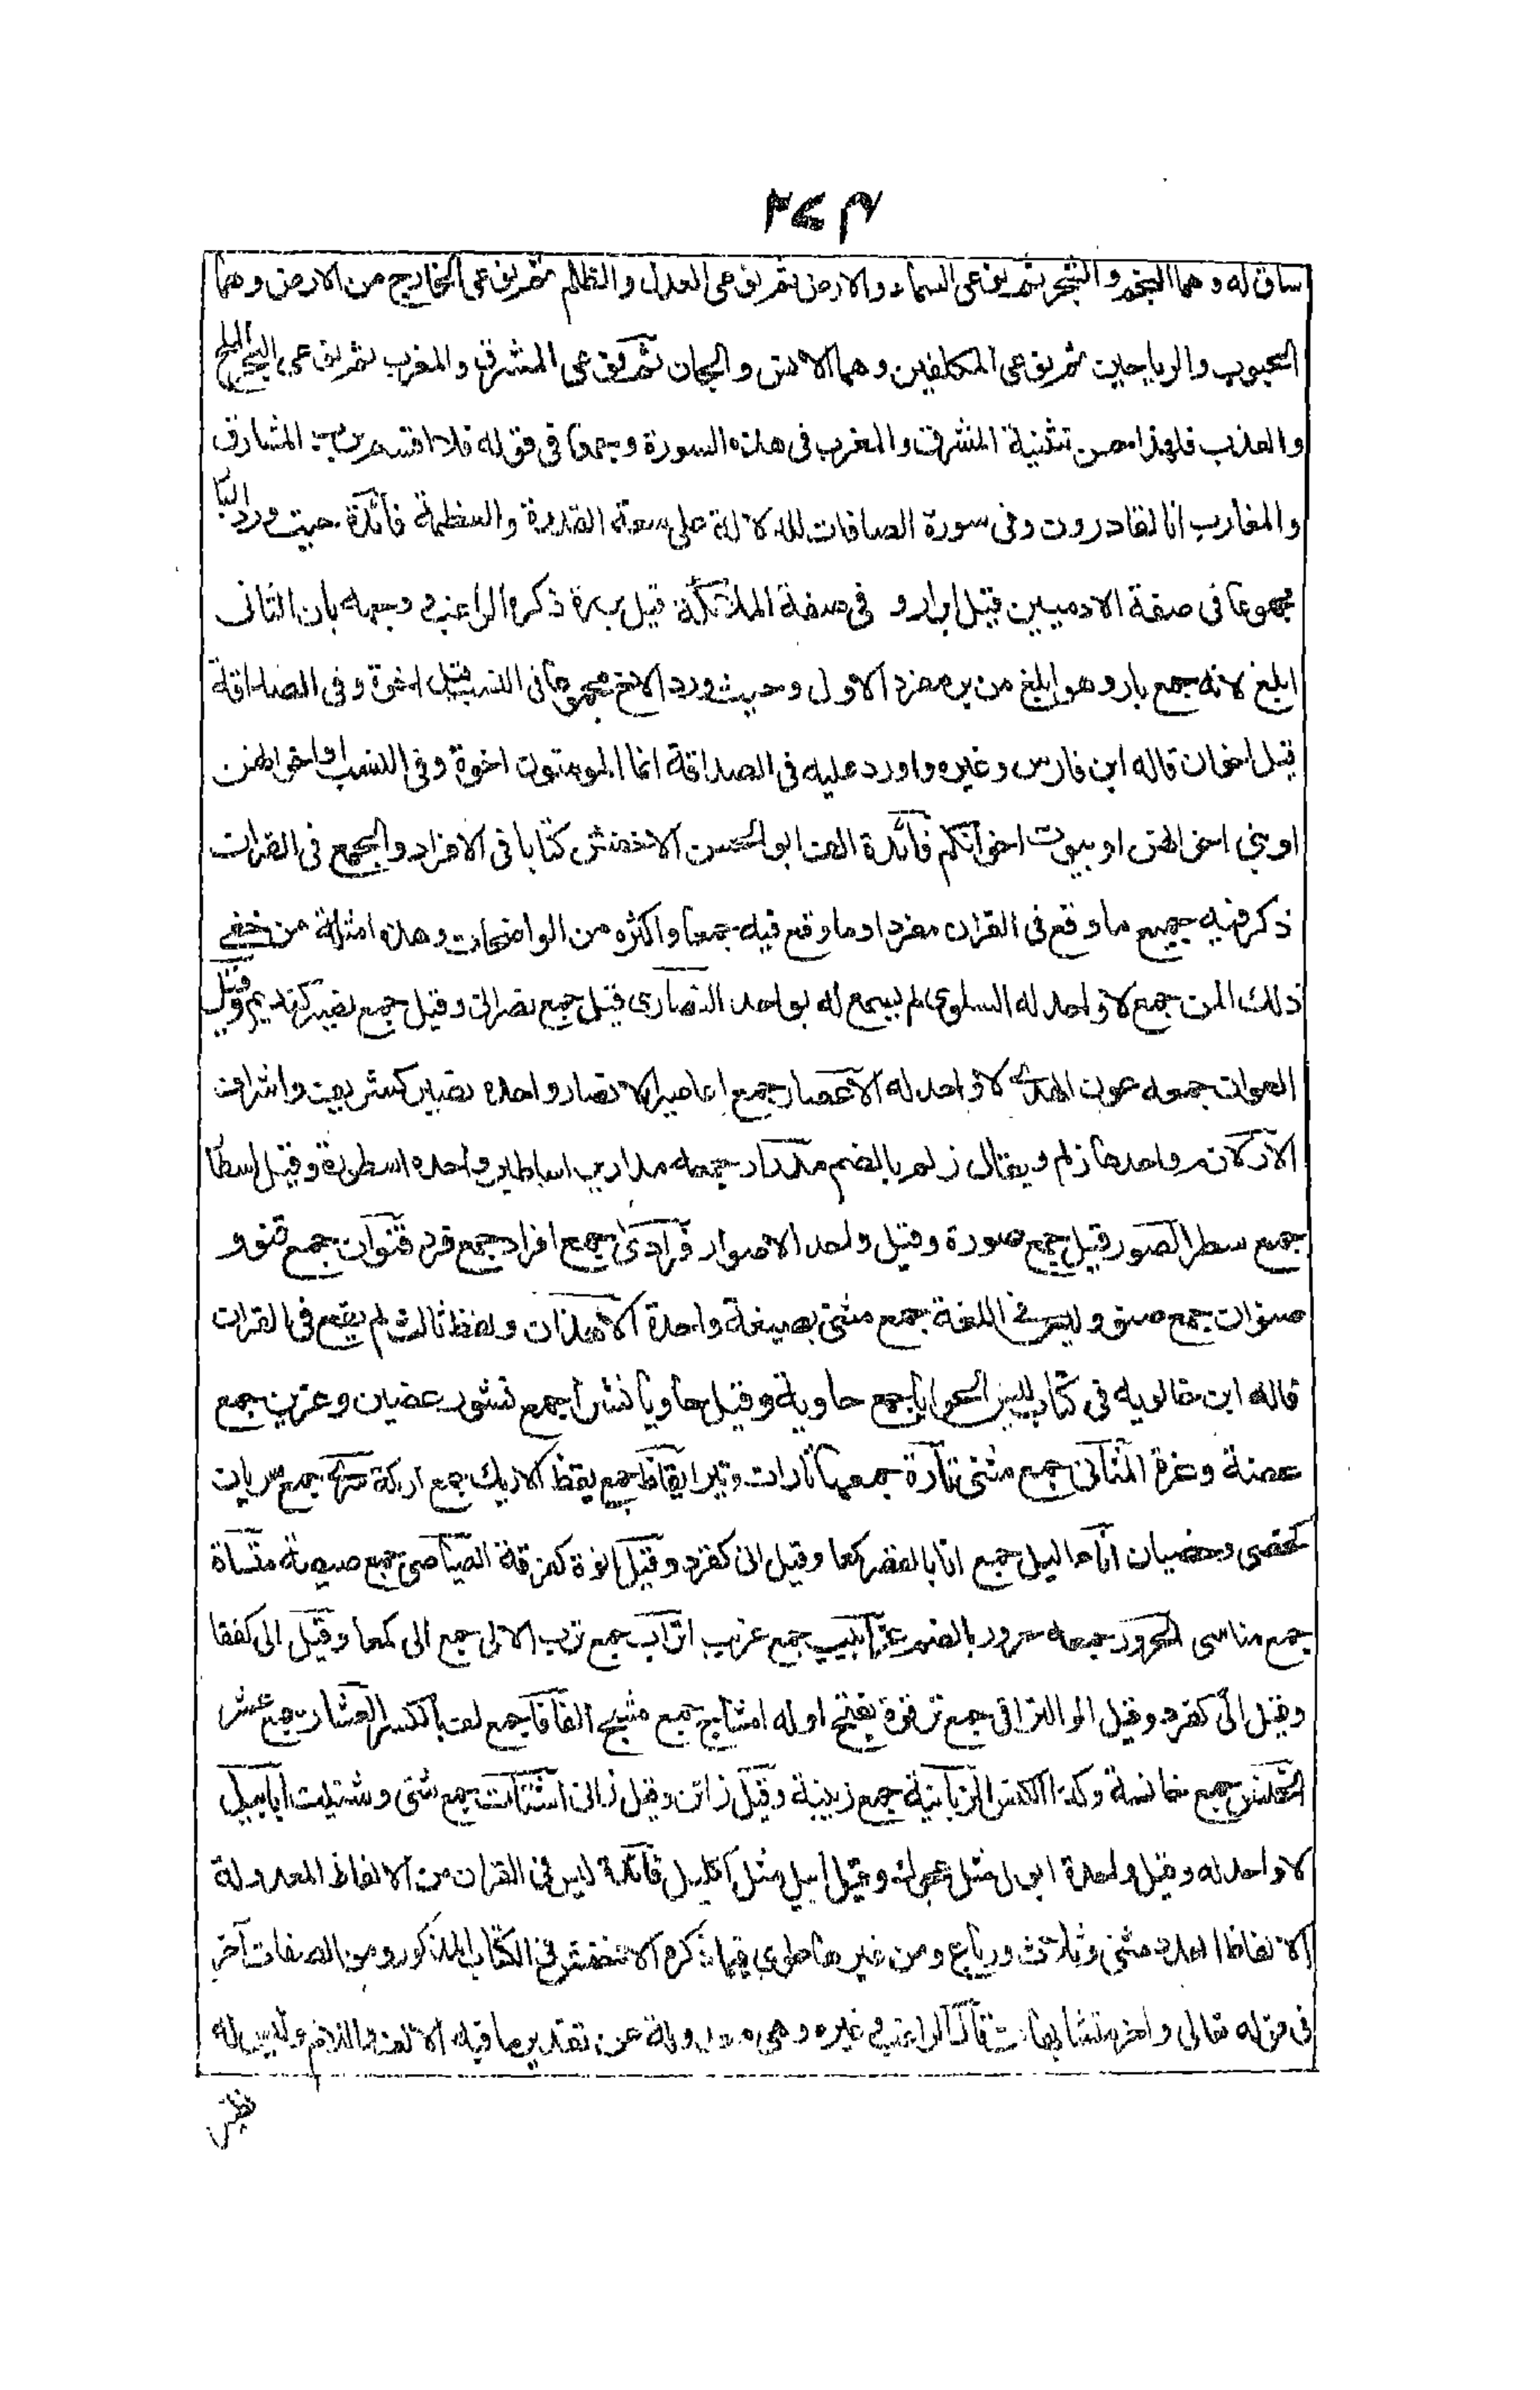 ٢٧٣
ساق له وهما النجم والشجر ثم نوعى السماء والارض ثم نوعى العدل والظلم ثم نوعى الخارج من الارض وهما
الحبوب والرياحين ثم نوعى المكلفين وهما الانس والجان ثم نوعى المشرق والمغرب ثم نوعى البحر الملح
والعذب فلهذا حسن تثنية المشرق والمغرب فى هذه السورة وجمعا فى قوله فلا اقسم برب المشارق
والمغارب انا لقادرون وفى سورة الصافات للدلالة على سعة القدرة والعظمة فائدة حيث ورد البار
مجموعا فى صفة الادميين قيل ابرار و فى صفة الملائكة قيل بررة ذكره الراغب ووجهه بان الثانى
ابلغ لانه جمع بار وهو ابلغ من بر مفرد الاول وحيث ورد الاخ مجموعا فى النسب قيل اخوة وفى الصداقة
قيل اخوان قاله ابن فارس وغيره واورد عليه فى الصداقة انما المومنون اخوة وفى النسب او اخوانهن
او بنى اخوانهن او بيوت اخوانكم فائدة الف ابو الحسن الاخفش كتابا فى الافراد والجمع فى القران
ذكر فيه جميع ما وقع فى القران مفردا وما وقع فيه جمعا واكثره من الواضحات وهذه امثلة من خفى
ذلك المن جمع لا واحد له السلوى لم يسمع له بواحد النصارى قيل جمع نصرانى وقيل جمع نصير كنديم وقبيل
العوان جمعه عون الهدى لا واحد له الاعصار جمع اعاصير الانصار واحده نصير كشريف واشراف
الازلام واحدها زلم ويقال زلم بالضم مدرار جمعه مدارير اساطير واحده اسطورة وقيل اسطا
جمع سطر الصور قيل جمع صورة وقيل واحد الاصوار فرادى جمع افراد جمع فرد قنوان جمع قنو و
صنوان جمع صنو وليس فى اللغة جمع مثنى بصيغة واحدة الا هذان ولفظ ثالث لم يقع فى القران
قاله ابن خالويه فى كتاب ليس الحوايا جمع حاوية وقيل حاويا نشرا جمع نشور عضين وعزين جمع
عضة وعزة المثانى جمع مثنى تارة جمعها تارات وتير ايقاظ جمع يقظ الاريك جمع اريكة سرى جمع سريان
كخصى وخصيان اناء اليل جمع انا بالقصر كمعا وقيل انى كقرد وقيل انوة كفرقة الصياصى جمع صيصة منساة
جمع مناسى الحرور جمعه حرور بالضم غرابيب جمع غربيب اتراب جمع ترب الالى جمع الى كمعا وقيل الى كقفا
وقيل الى كقرد وقيل الو التراقى جمع ترقوة بفتح اوله امشاج جمع مشيج الفافا جمع لف بالكسر العشار جمع عشر
الخنس جمع خانسة وكذا الكنس الزبانية جمع زبنية وقيل زابن وقيل زبانى اشتاتا جمع شتى وشتيت ابابيل
لا واحد له وقيل واحدة ابول مثل عجول وقيل ابيل مثل اكليل فائدة ليس فى القران من الالفاظ المعدولة
الا الفاظ العدد مثنى وثلاث ورباع ومن غيرها طوى فيما ذكره الاخفش فى الكتاب المذكور ومن الصفات آخر
فى قوله تعالى واخر متشابهات قال الراغب وغيره وهى معدولة عن تقدير ما فيه الالف واللام وليس له
نظير